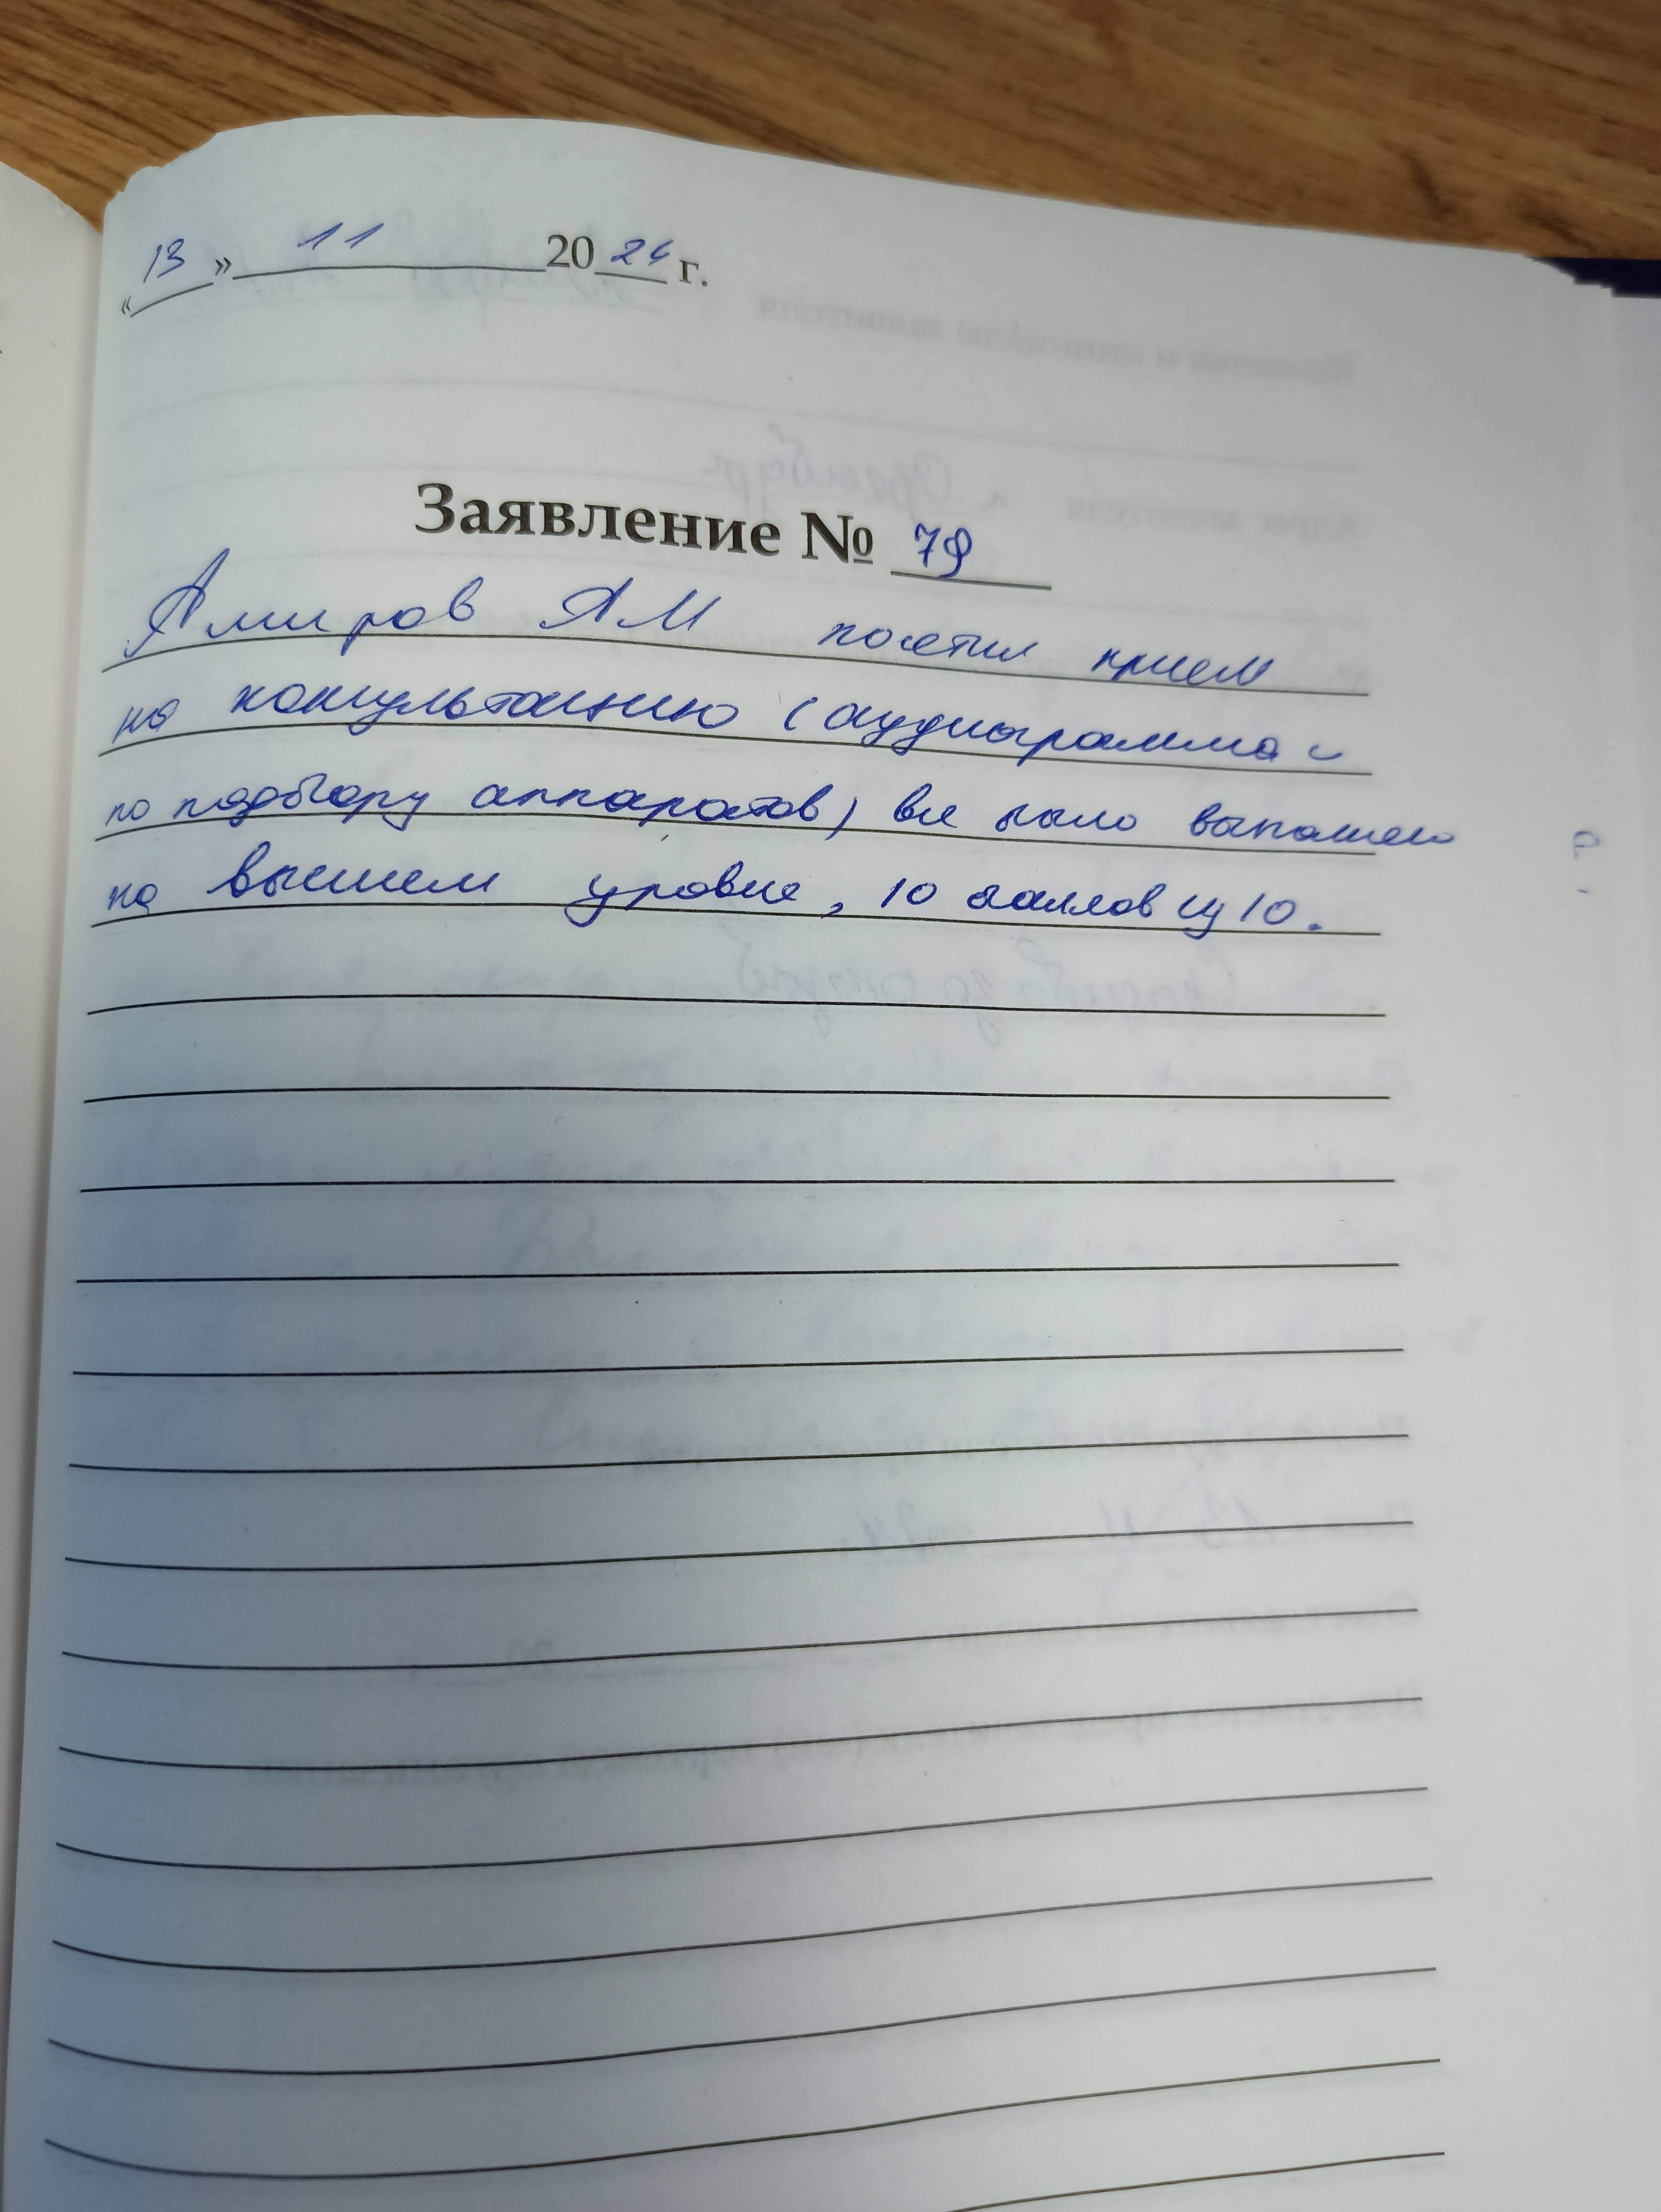 « 13 » 11 20 24 г.
Заявление № 79
Амиров ЯМ посетил прием
на консультацию (аудиограмма и
по подбору аппаратов) все было выполнено
на высшем уровне, 10 баллов из 10.